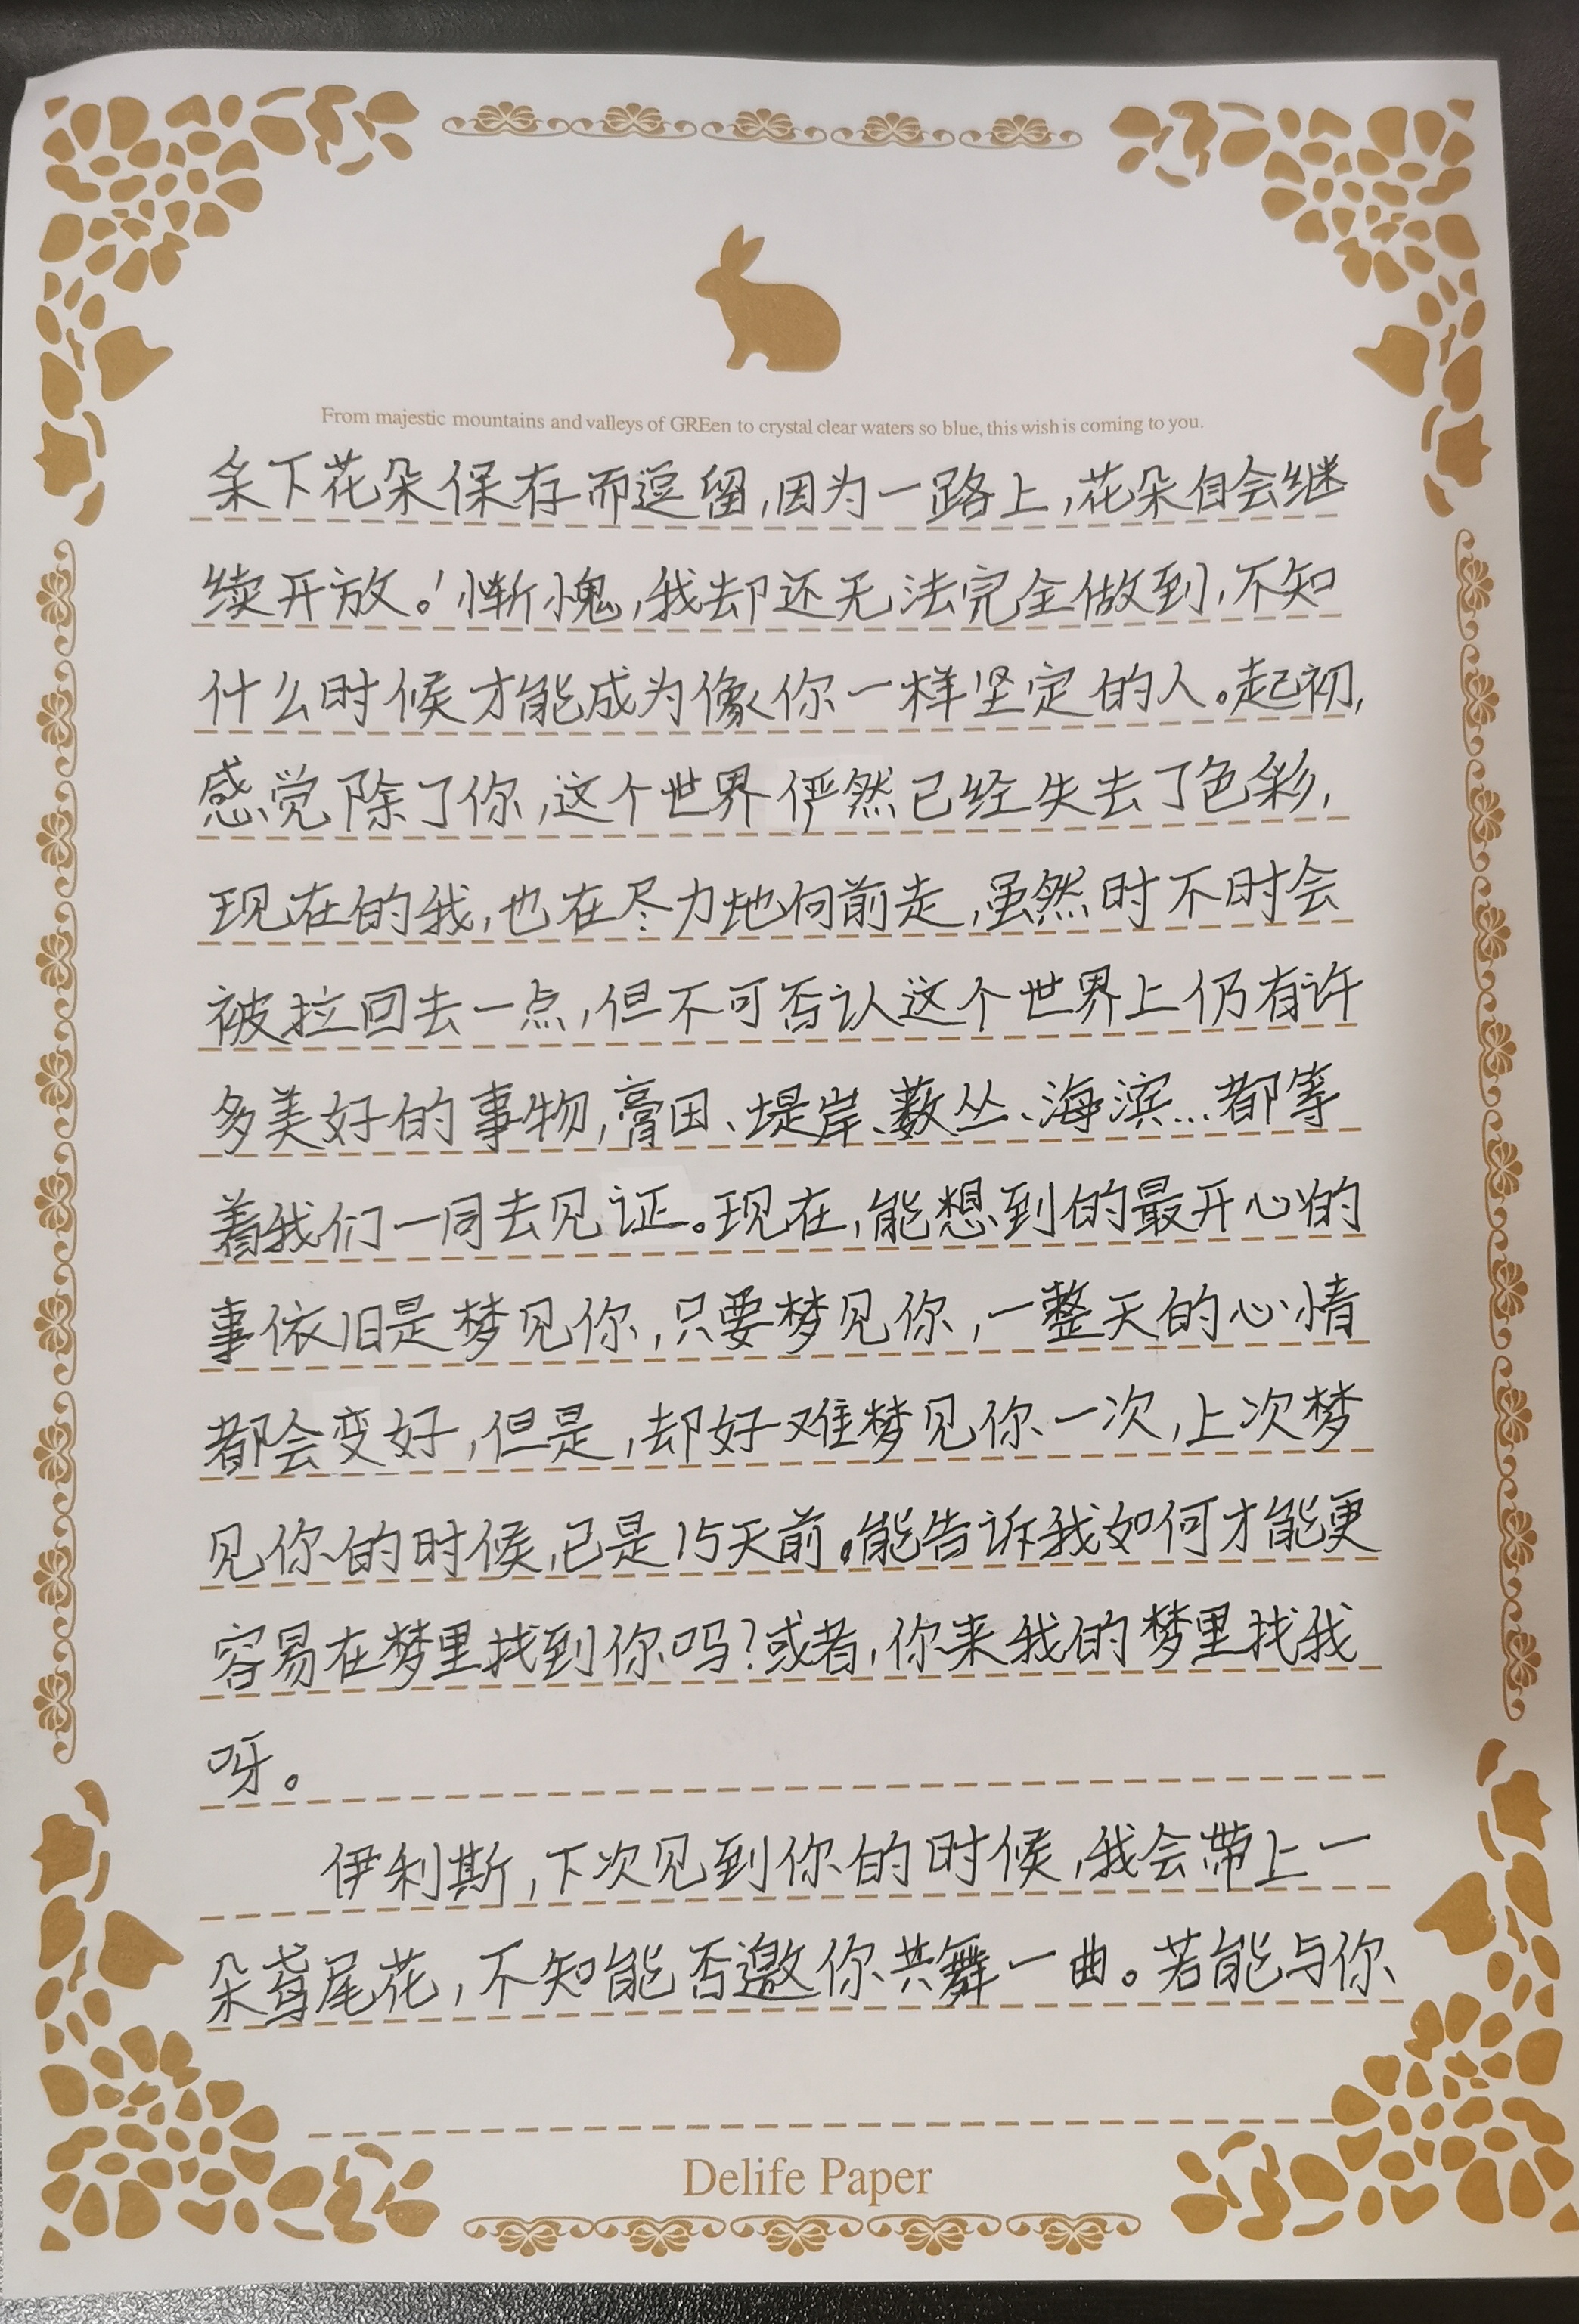 From majestic mountains and valleys of GREen to crystal clear waters so blue, this wish is coming to you.
采下花朵保存而逗留,因为一路上,花朵自会继
续开放。'惭愧,我却还无法完全做到,不知
什么时候才能成为像你一样坚定的人。起初,
感觉除了你,这个世界俨然已经失去了色彩,
现在的我,也在尽力地向前走,虽然时不时会
被拉回去一点,但不可否认这个世界上仍有许
多美好的事物,膏田、堤岸、薮丛、海滨...都等
着我们一同去见证。现在,能想到的最开心的
事依旧是梦见你,只要梦见你,一整天的心情
都会变好,但是,却好难梦见你一次,上次梦
见你的时候,已是15天前。能告诉我如何才能更
容易在梦里找到你吗?或者,你来我的梦里找我
呀。
伊利斯,下次见到你的时候,我会带上一
朵鸢尾花,不知能否邀你共舞一曲。若能与你
Delife Paper